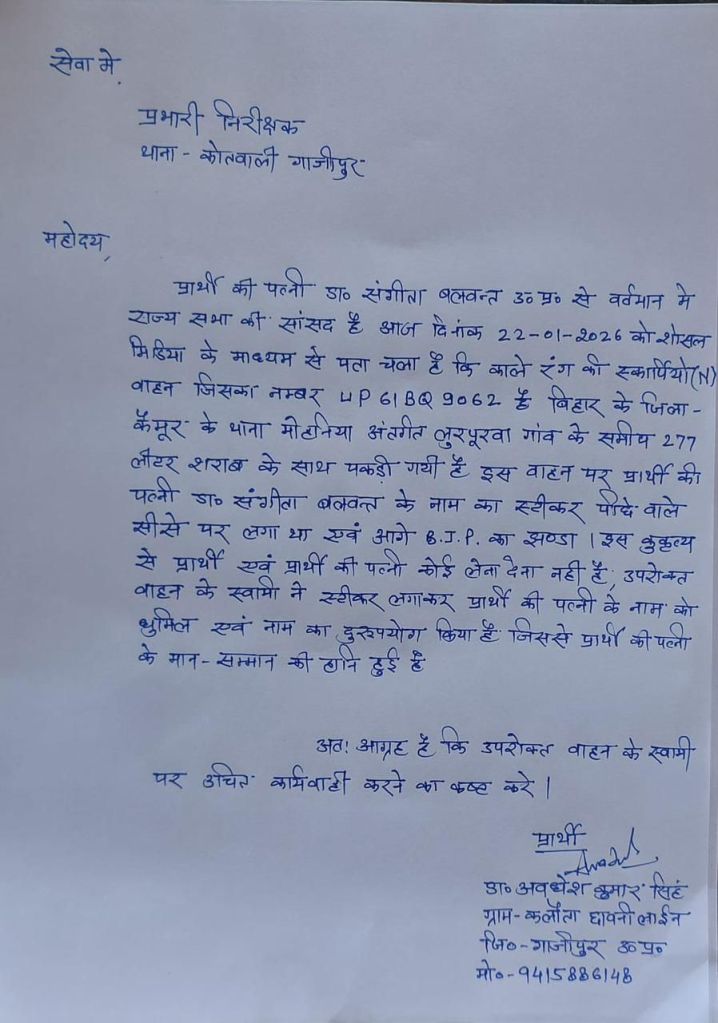 सेवा मे,
प्रभारी निरीक्षक
थाना - कोतवाली गाजीपुर
महोदय,
प्रार्थी की पत्नी डा० संगीता बलवन्त उ०प्र० से वर्तमान मे
राज्य सभा की सांसद है आज दिनांक 22-01-2026 को शोसल
मिडिया के माध्यम से पता चला है कि काले रंग की स्कार्पियो(N)
वाहन जिसका नम्बर UP61BQ9062 है बिहार के जिला-
कैमूर के थाना मोहनिया अंतर्गत लुरपूरवा गांव के समीप 277
लीटर शराब के साथ पकड़ी गयी है इस वाहन पर प्रार्थी की
पत्नी डा० संगीता बलवन्त के नाम का स्टीकर पीछे वाले
सीसे पर लगा था एवं आगे B.J.P. का झण्डा । इस कुकृत्य
से प्रार्थी एवं प्रार्थी की पत्नी कोई लेना देना नहीं है, उपरोक्त
वाहन के स्वामी ने स्टीकर लगाकर प्रार्थी की पत्नी के नाम को
धुमिल एवं नाम का दुरूपयोग किया है जिससे प्रार्थी की पत्नी
के मान-सम्मान की हानि हुई है
अतः आग्रह है कि उपरोक्त वाहन के स्वामी
पर उचित कार्यवाही करने का कष्ट करे ।
प्रार्थी
डा० अवधेश कुमार सिंह
ग्राम- छावनी लाईन
जि०- गाजीपुर उ०प्र०
मो०-9415886148